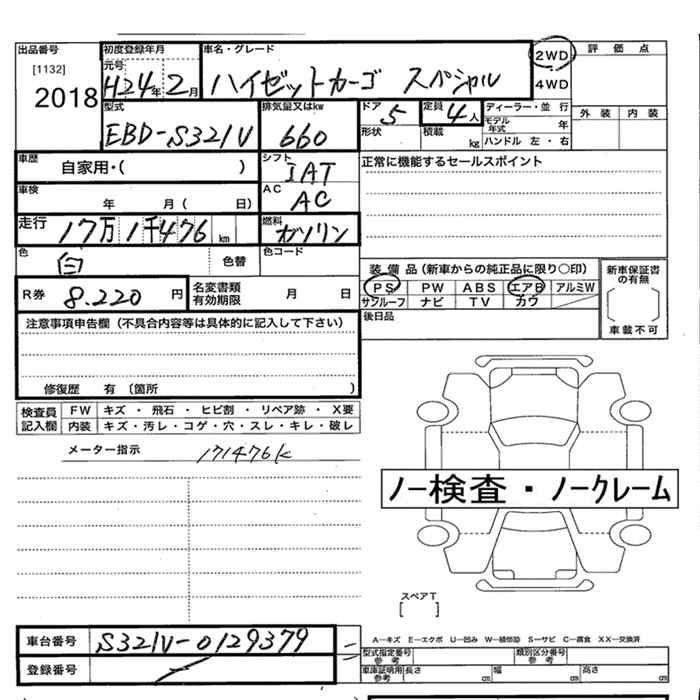 出品番号 初度登録年月 車名・グレード 2WD 評価点
[1132] 元号
2018 H24年2月 ハイゼットカーゴ スペシャル 4WD
型式 排気量又はkw ドア 定員 ディーラー・並行 外装 内装
EBD-S321V 660 5 4人 モデル年式 年
形状 積載 kg ハンドル 左・右
車歴 自家用・( ) シフト IAT 正常に機能するセールスポイント
車検 年 月( 日) AC AC
走行 17万1千476km 燃料 ガソリン
色 白 色替 色コード
装備品(新車からの純正品に限り○印) 新車保証書の有無
R券 8.220円 名変書類有効期限 月 日 PS PW ABS エアB アルミW
サンルーフ ナビ TV カワ 車載不可
注意事項申告欄(不具合内容等は具体的に記入して下さい) 後日品
修復歴 有 〔箇所 〕
検査員記入欄 FW キズ・飛石・ヒビ割・リペア跡・X要
内装 キズ・汚レ・コゲ・穴・スレ・キレ・破レ
メーター指示 171476k
ノー検査・ノークレーム
スペアT
[ ]
車台番号 S321V-0129379
A―キズ E―エクボ U―凹み W―補修跡 S―サビ C―腐食 XX―交換済
登録番号 型式指定番号 参考 類別区分番号 参考
車庫証明用参考 長さ cm 幅 cm 高さ cm